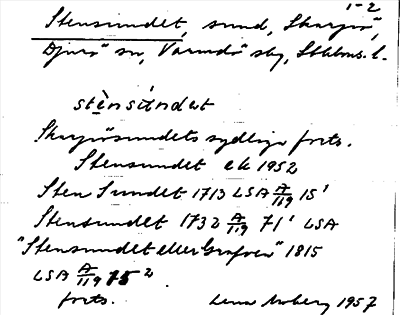 1-2
Stensundet, sund, Skarpö,
Djurö sn, Värmdö sky, Sthlms. l.
stènsúndet
Skarpösundets sydliga forts.
Stensundet ek 1952
Sten Sundet 1713 LSA A/119 15'
Stensundet 1732 A/119 71' LSA
"Stensundet eller Grafven" 1815
LSA A/119 75 2
forts. Lena Moberg 1957